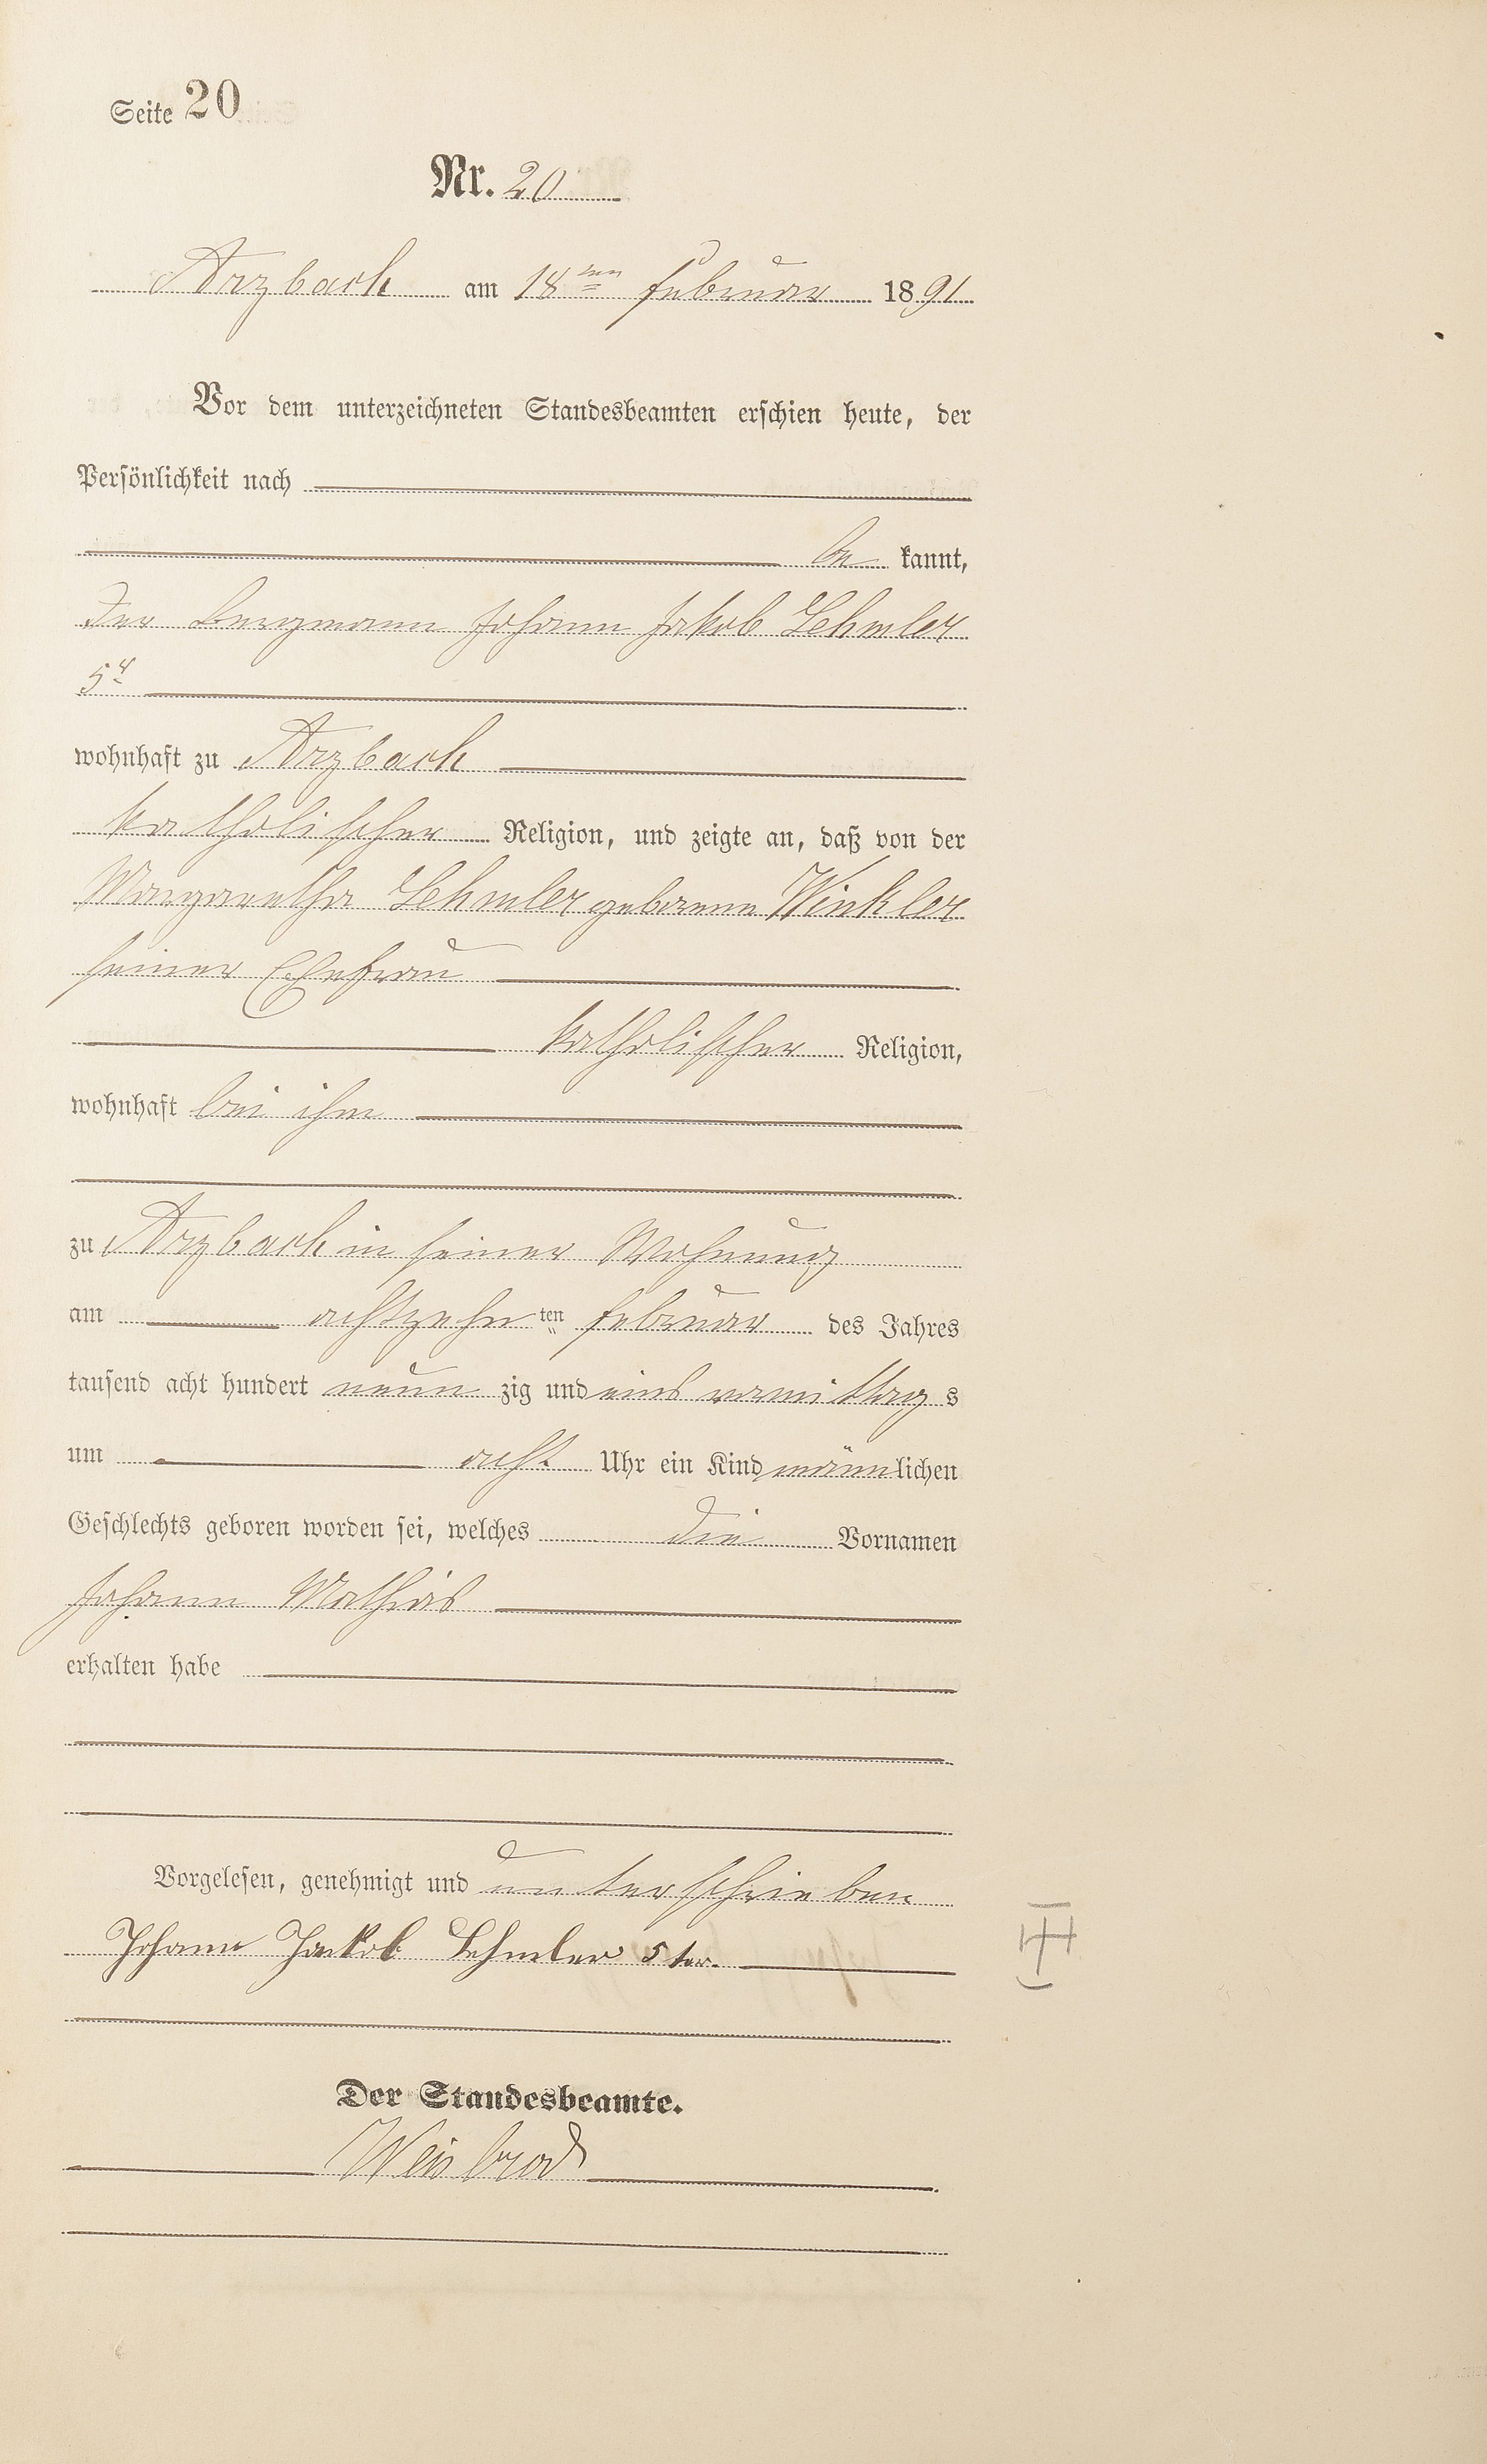 Seite 20
Nr. 20
Arzbach am 18ten Februar 1891
Vor dem unterzeichneten Standesbeamten erschien heute, der
Persönlichkeit nach
be kannt,
der Bergmann Johann Jakob Lehmler
5r
wohnhaft zu Arzbach
katholischer Religion, und zeigte an, daß von der
Margaretha Lehmler geborene Winkler
seiner Ehefrau
katholischer Religion,
wohnhaft bei ihm
zu Arzbach in seiner Wohnung
am achtzehn ten Februar des Jahres
tausend acht hundert neun zig und eins vormittag s
um acht Uhr ein Kind männlichen
Geschlechts geboren worden sei, welches die Vornamen
Johann Mathias
erhalten habe
Vorgelesen, genehmigt und unterschrieben
Johann Jackob Lehmler 5ter.
Der Standesbeamte.
Weisbrod